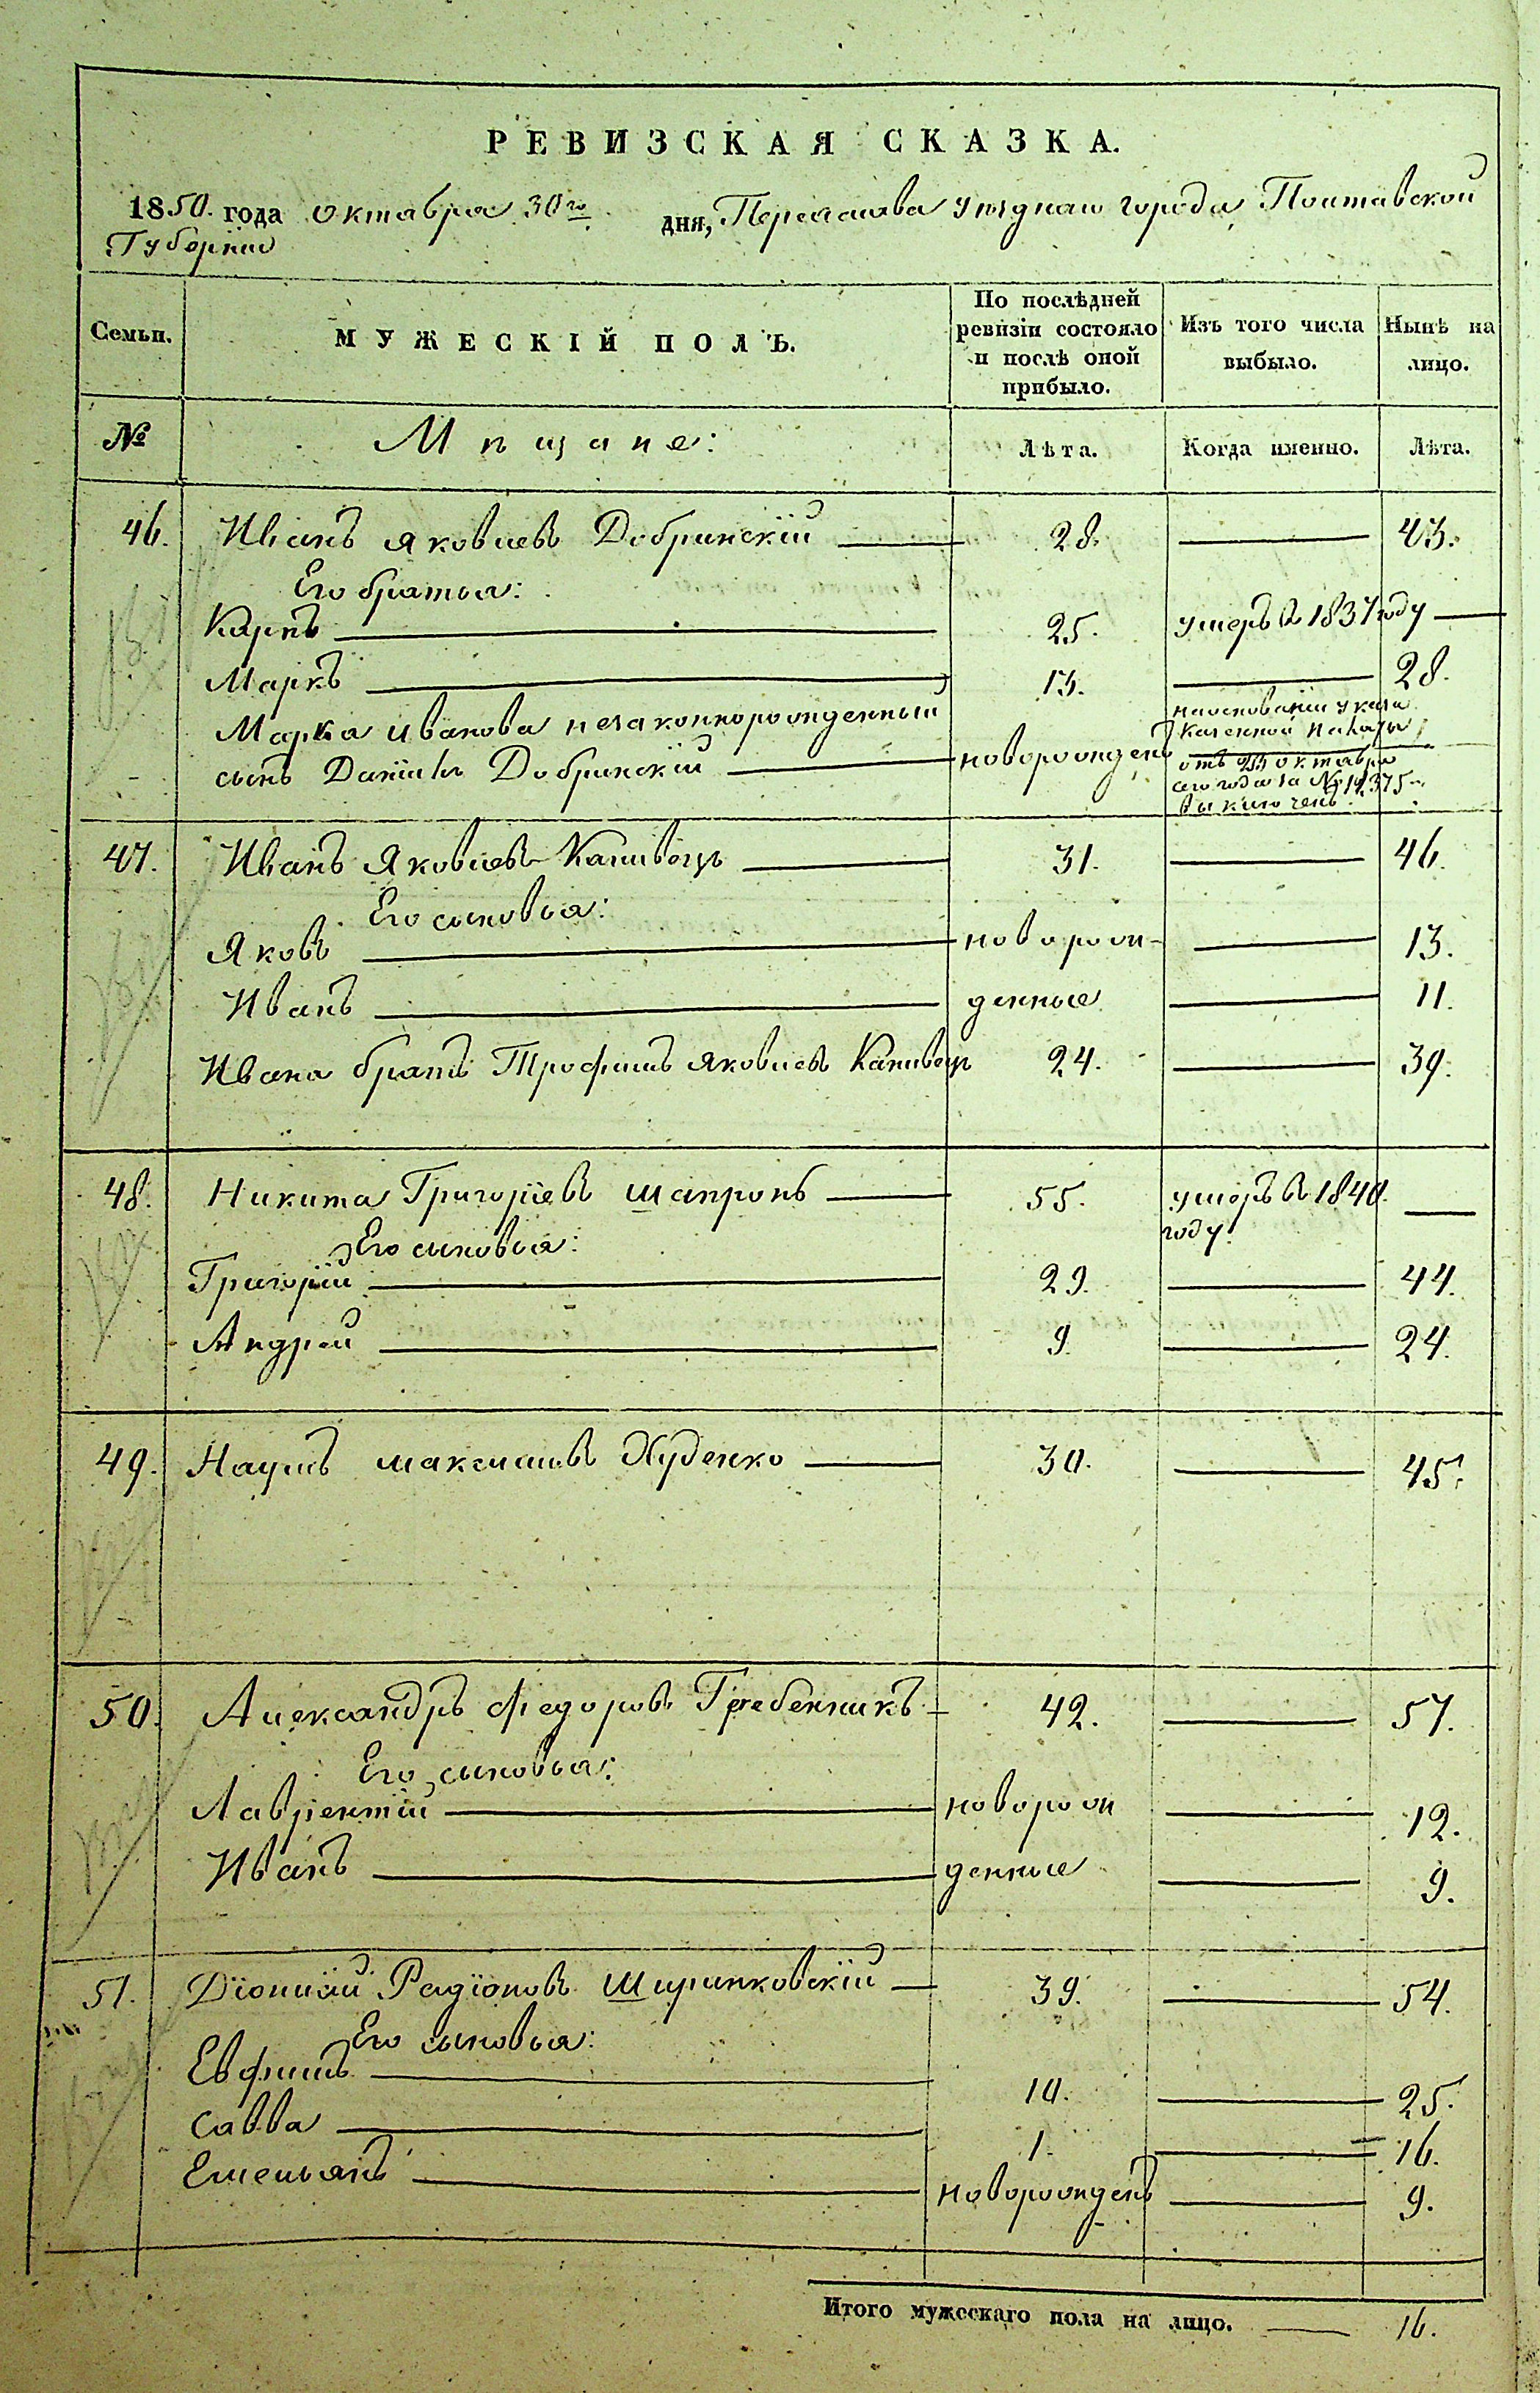 РЕВИЗСКАЯ СКАЗКА.
1850. года октября 30го дня, Переяслава уѣзднаго города, Полтавской
Губерніи
Семьи. МУЖЕСКІЙ ПОЛЪ. По послѣдней ревизіи состояло и послѣ оной прибыло. Изъ того числа выбыло. Нынѣ на лицо.
№ Мѣщане: Лѣта. Когда именно. Лѣта.
46. Иванъ Яковлевъ Добринскій 28. 43.
Его братья:
Карпъ 25. умеръ в 1837 году
Маркъ 13. 28.
Марка Иванова незаконнорожденный
сынъ Даніилъ Добринскій новорожденъ
на основаніи указа
Казенной палаты
отъ 25 октября
сего года за № 19375
выключенъ.
47. Иванъ Яковлевъ Капивецъ 31. 46.
Его сыновья:
Яковъ новорож- 13.
Иванъ денные 11.
Ивана братъ Трофимъ Яковлевъ Капивецъ 24. 39.
48. Никита Григоріевъ Шапронъ 55. умеръ в 1840.
году.
Его сыновья:
Григорій 29. 44.
Андрей 9. 24.
49. Наумъ Максимовъ Худенко 30. 45.
50. Александръ Федоровъ Гребенникъ 42. 57.
Его сыновья:
Лаврентій новорож 12.
Иванъ денные 9.
51. Діонисій Радіоновъ Ширинковскій 39. 54.
Его сыновья:
Евфимъ 10. 25.
Савва 1. 16.
Емельянъ новорожденъ 9.
Итого мужескаго пола на лицо. 16.